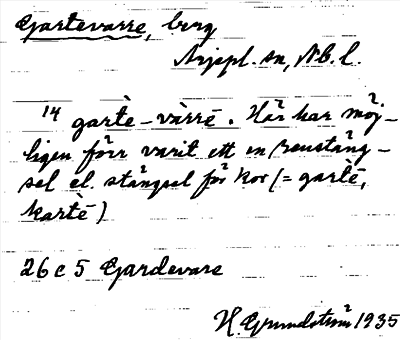 Gartevarre, berg
Arjepl. sn, Nb. l.
14 gartē-vàrrē. Här har möj-
ligen förr varit ett en renstäng-
sel el. stängsel för kor (= gartē,
kartē)
26 c 5 Gardevare
H. Grundström 1935